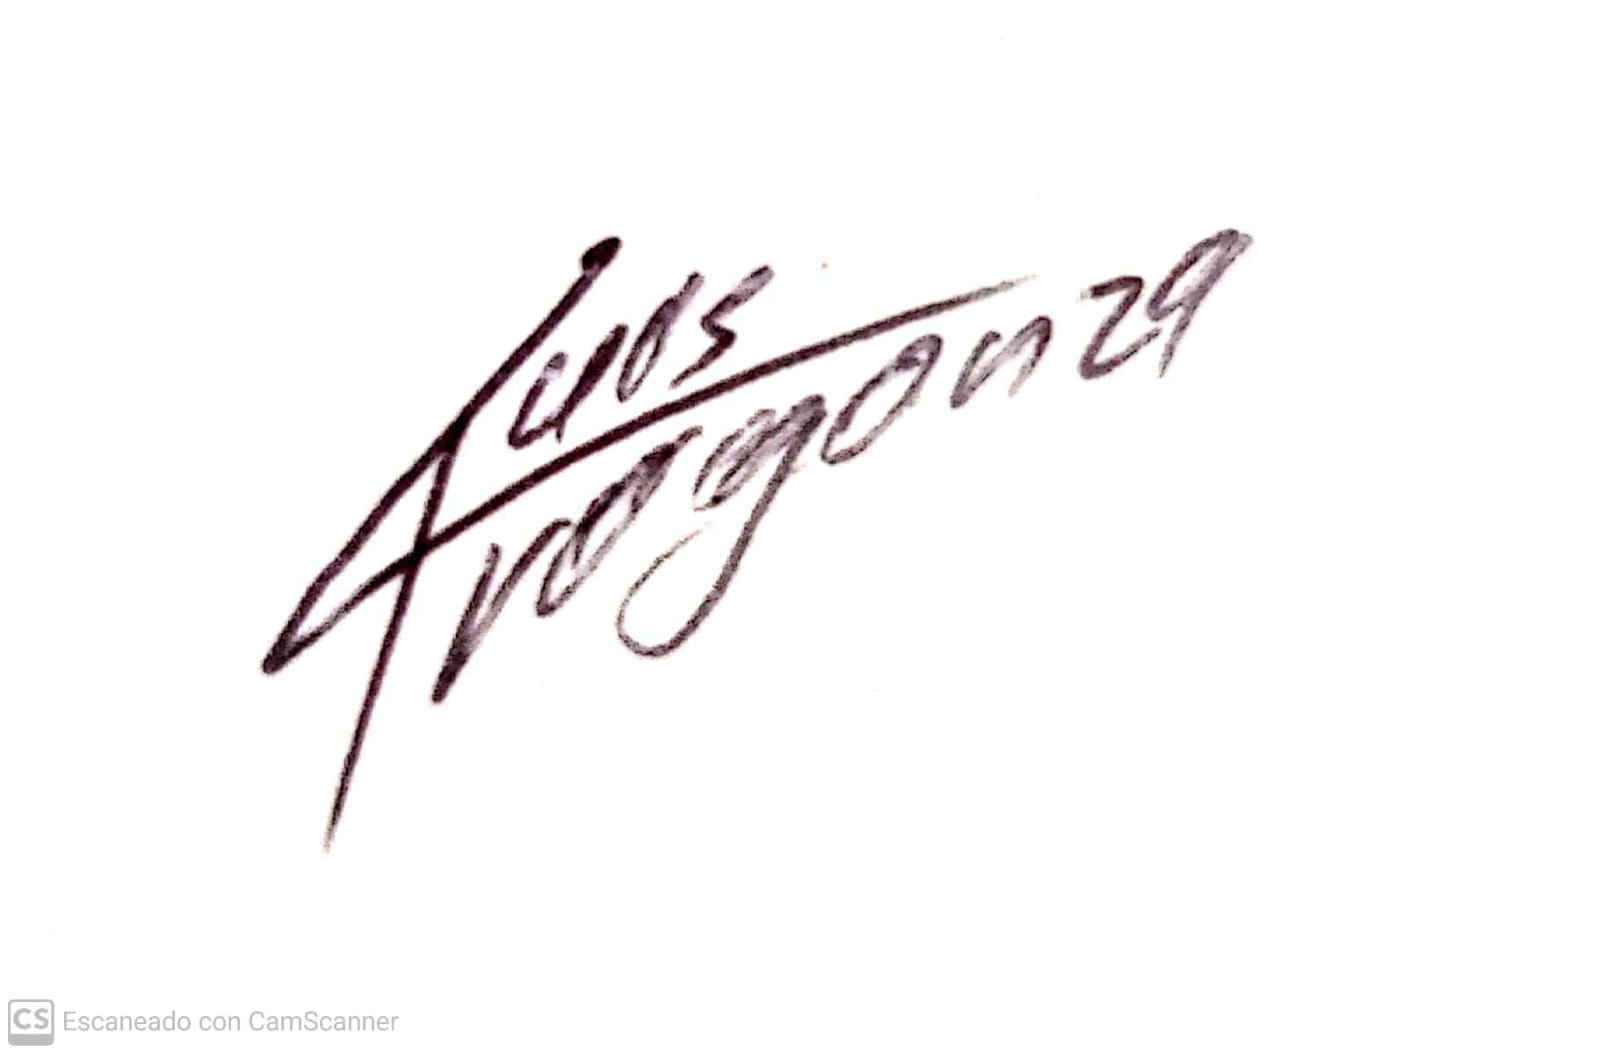 Luis
Aragon 29
CS Escaneado con CamScanner